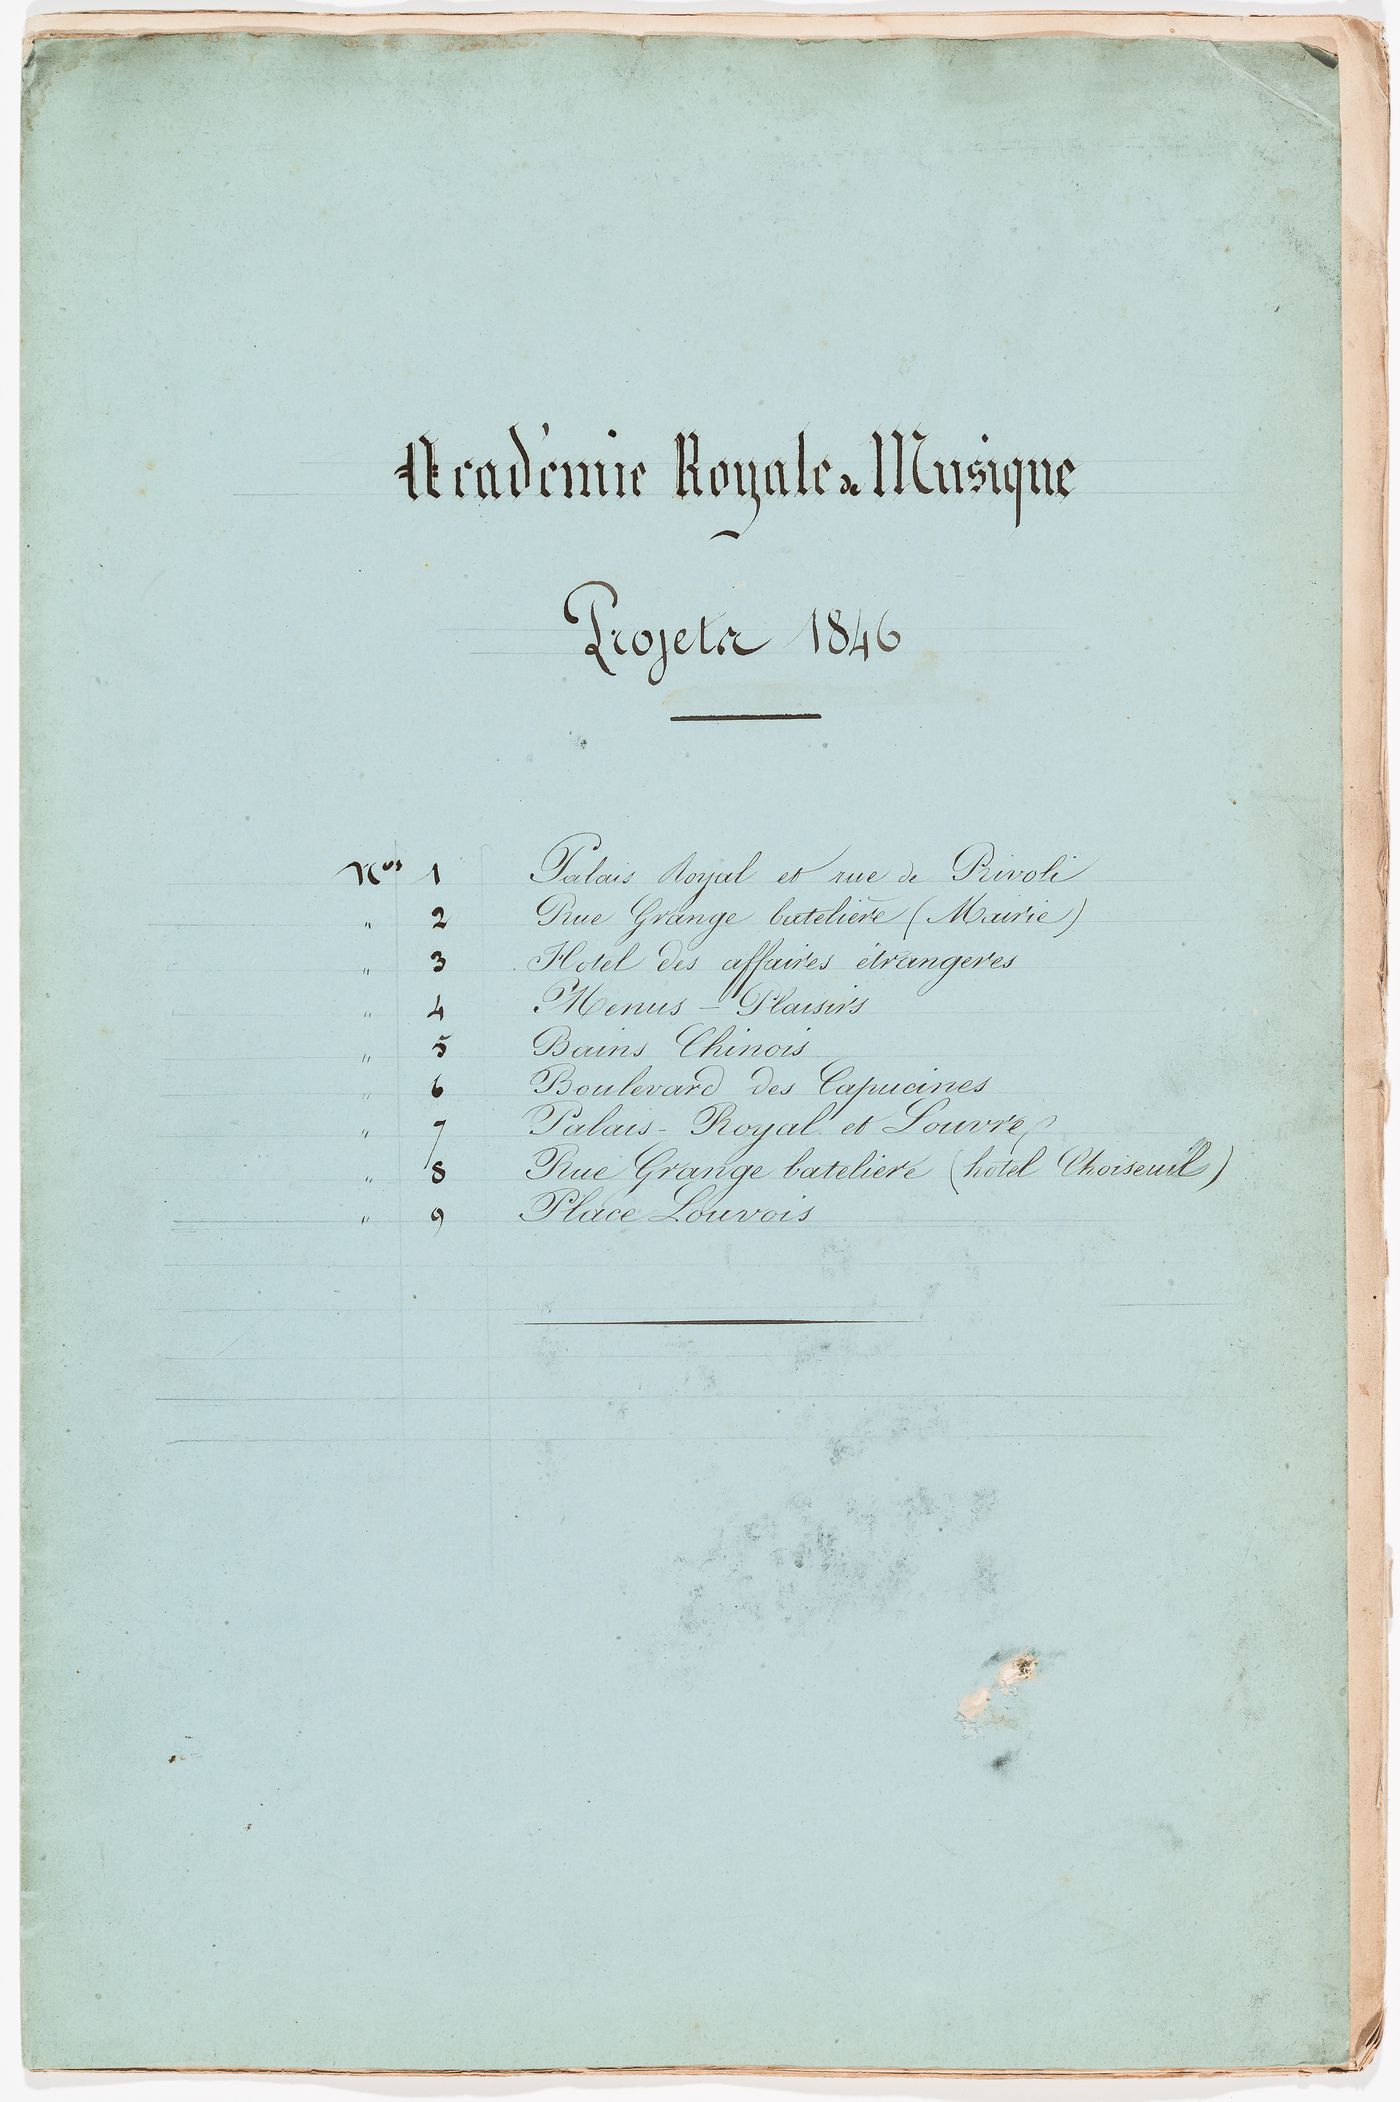 Académie Royale de Musique
Projets 1846
Nos 1 Palais Royal et rue de Rivoli
" 2 Rue Grange batelière (Mairie)
" 3 Hotel des affaires étrangeres
" 4 Menus - Plaisirs
" 5 Bains Chinois
" 6 Boulevard des Capucines
" 7 Palais - Royal et Louvre
" 8 Rue Grange bateliere (hotel Choiseuil)
" 9 Place Louvois